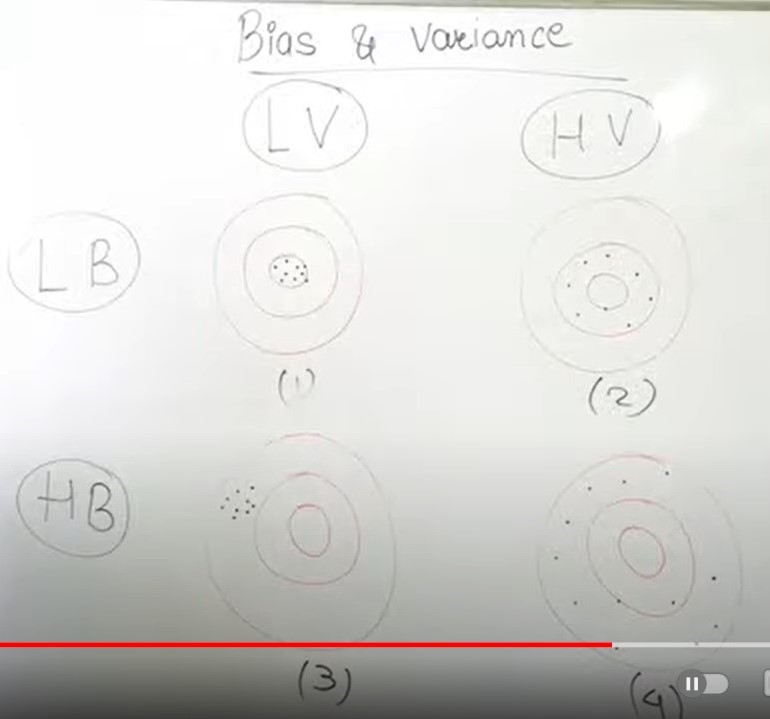 Bias & Variance
LV
HV
LB
(1)
(2)
HB
(3)
(4)